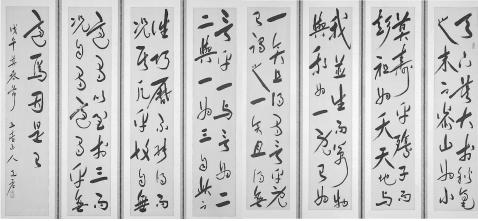 天下莫大於秋毫
之末而太山為小
莫壽乎殤子而
彭祖為夭天地與
我並生而萬物
與我為一既已為
一矣且得有言乎既
已謂之一矣且得無
言乎一與言為二
二與一為三自此以
往巧曆不能得而
況其凡乎故自無
適有以至於三而
況自有適有乎無
適焉因是已
戊午